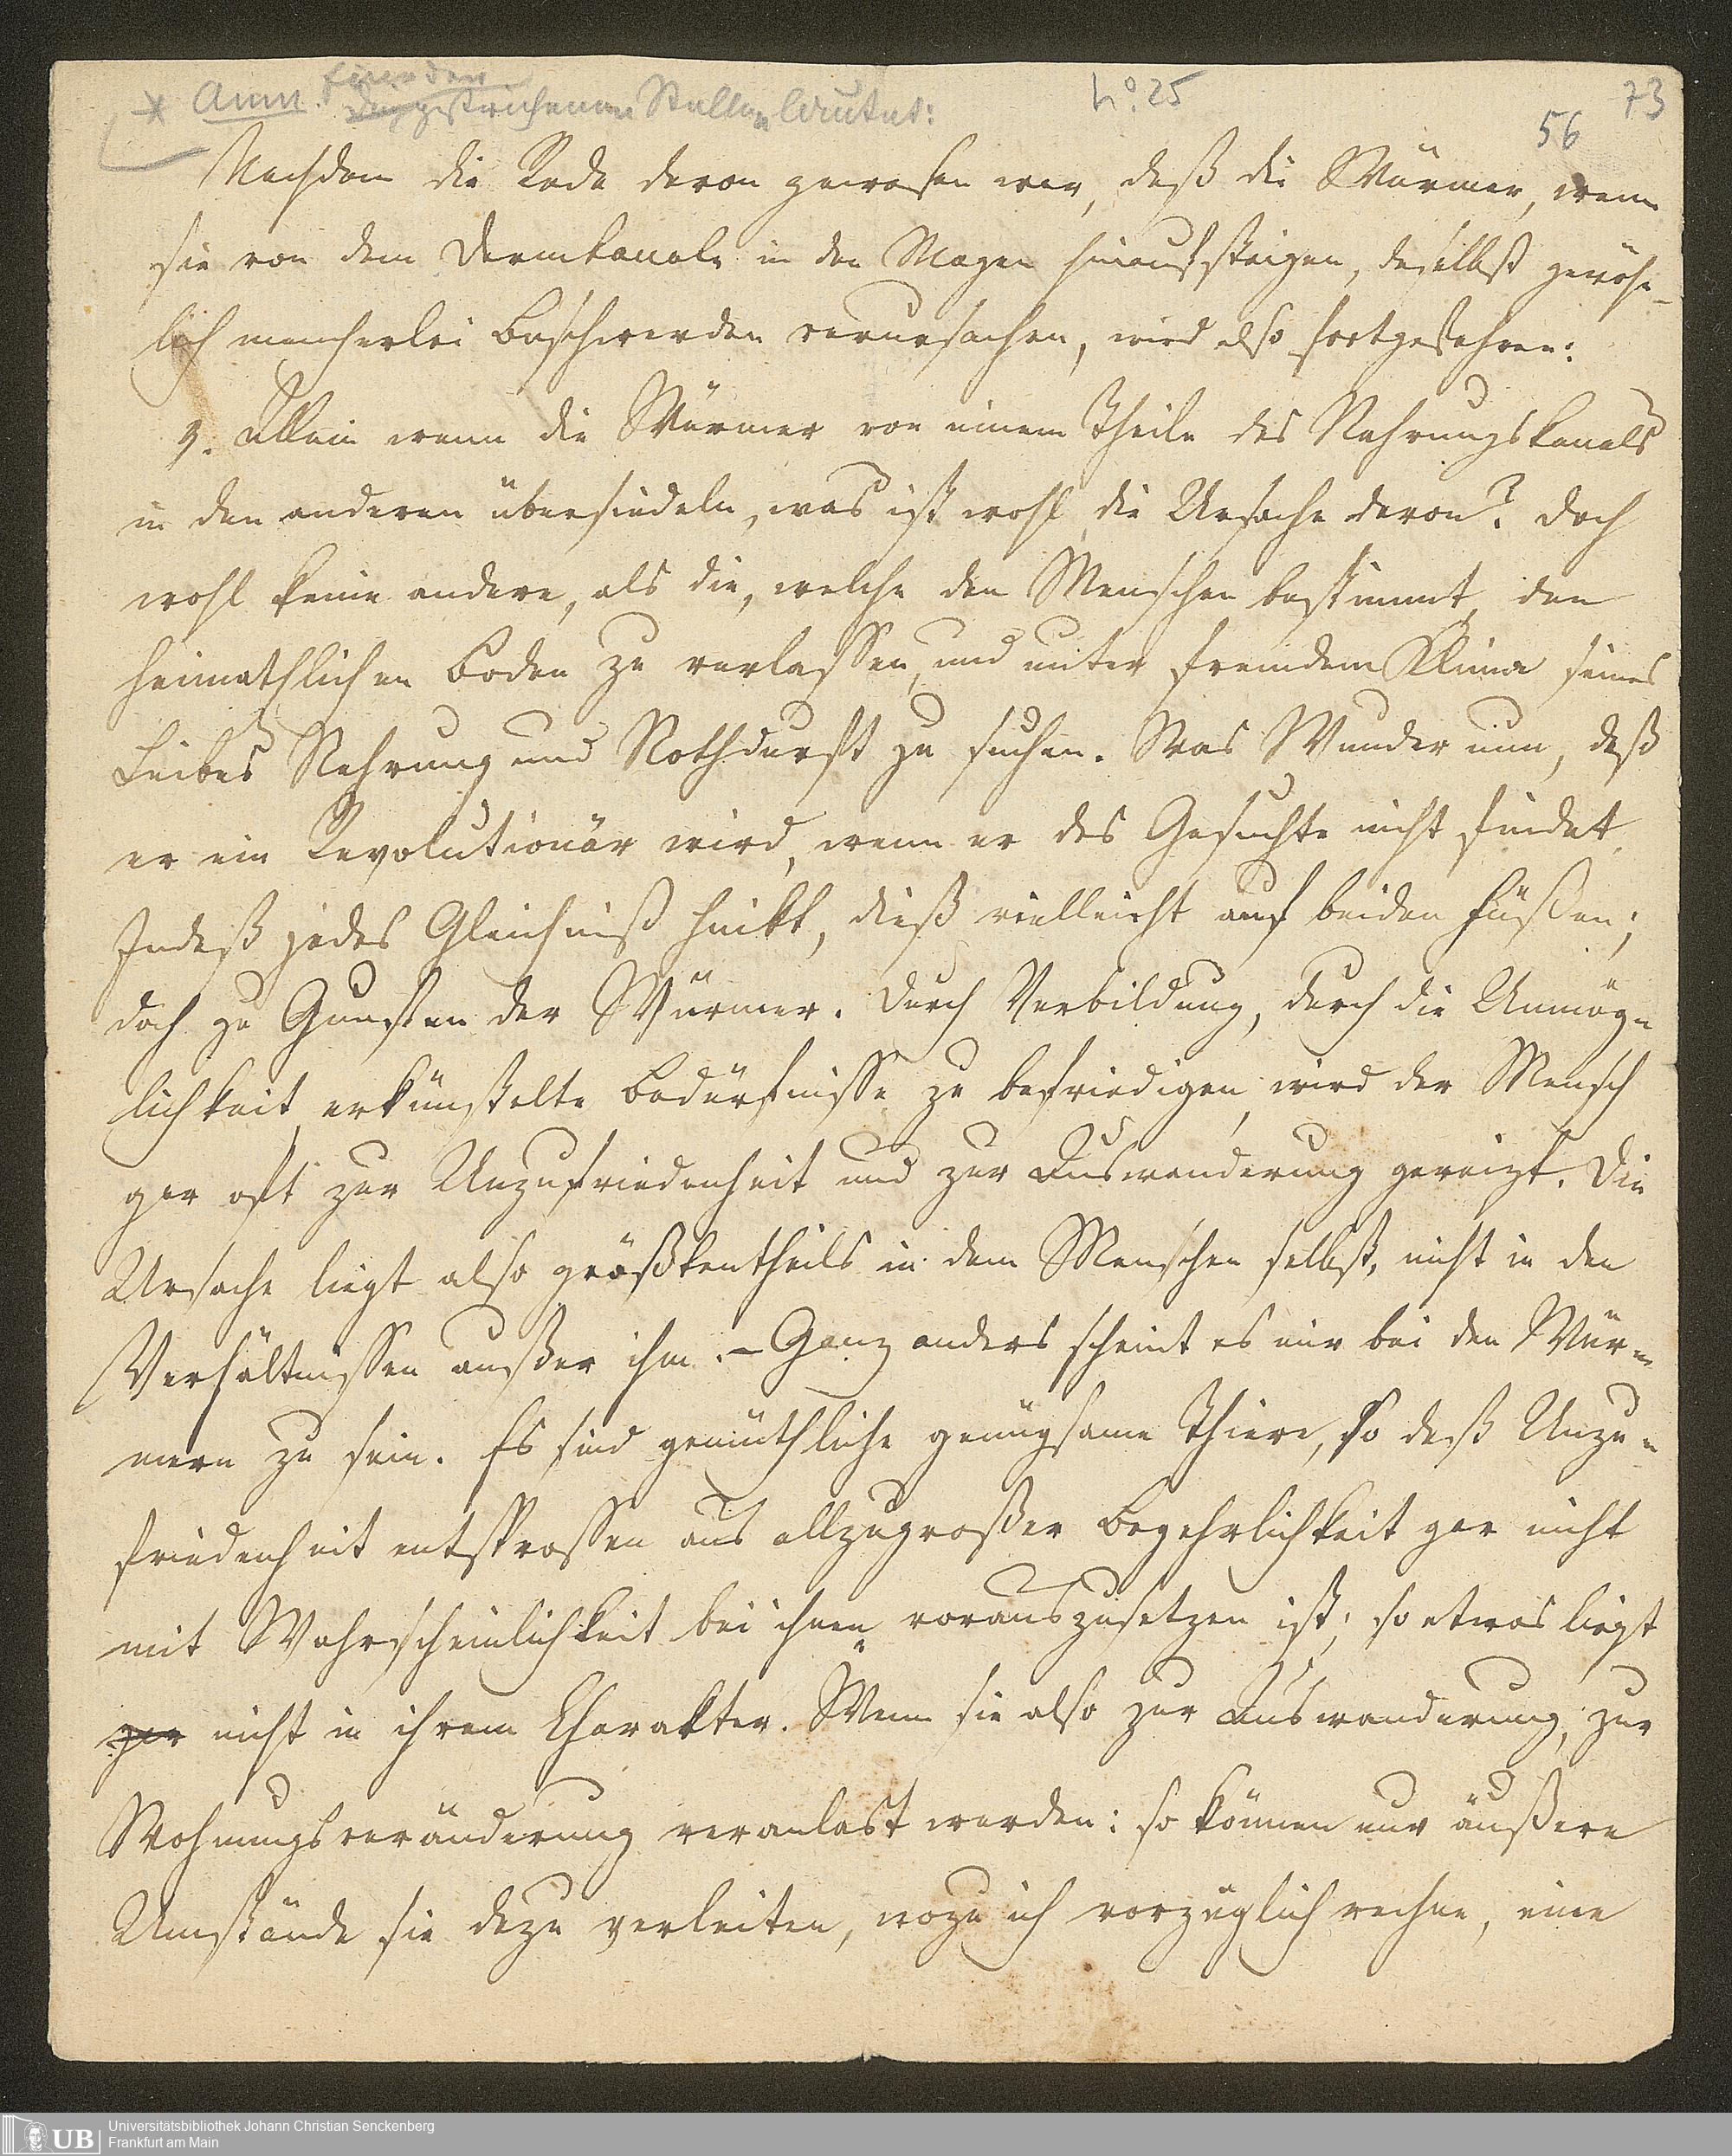 * Anm. Eine der
gestrichenen Stellen lautet:
No. 25
73
56
Nachdem die Rede davon gewesen war, daß die Würmer, wenn
sie von dem Darmkanale in den Magen hinaufsteigen, daselbst gewöhn-
lich mancherlei Beschwerden verursachen, wird also fortgefahren:
Allein wenn die Würmer von einem Theile des Nahrungskanals
in den anderen übersiedeln, was ist wohl die Ursache davon? Doch
wohl keine andere, als die, welche den Menschen bestimmt, den
heimathlichen Boden zu verlassen, und unter fremdem Klima seines
Leibes Nahrung und Nothdurft zu suchen. Was Wunder nun, daß
er ein Revolutionär wird, wenn er das Gesuchte nicht findet.
Indeß jedes Gleichniß hinkt, dieß vielleicht auf beiden Füßen;
doch zu Gunsten der Würmer. Durch Verbildung, durch die Unmög-
lichkeit, erkünstelte Bedürfnisse zu befriedigen, wird der Mensch
gar oft zur Unzufriedenheit und zur Auswanderung gereizt. Die
Ursache liegt also größtentheils in dem Menschen selbst, nicht in den
Verhältnissen außer ihm. – Ganz anders scheint es mir bei den Wür-
mern zu sein. Es sind gemüthliche genügsame Thiere, so daß Unzu-
friedenheit entsprossen aus allzugroßer Begehrlichkeit gar nicht
mit Wahrscheinlichkeit bei ihnen vorauszusetzen ist; so etwas liegt
gar nicht in ihrem Charakter. Wenn sie also zur Auswanderung, zur
Wohnungsveränderung veranlaßt werden: so können nur äußere
Umstände sie dazu verleiten, wozu ich vorzüglich rechne, eine
UB
Universitätsbibliothek Johann Christian Senckenberg
Frankfurt am Main